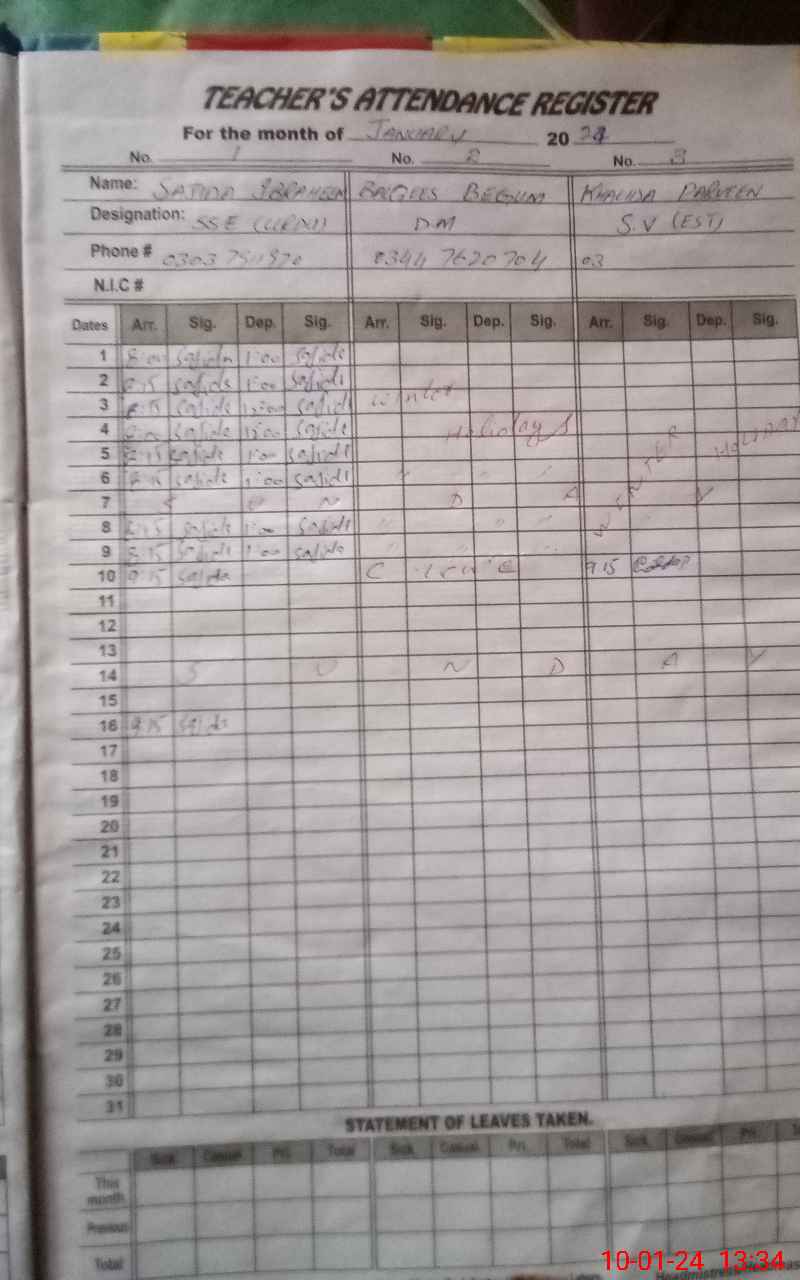 TEACHER'S ATTENDANCE REGISTER
For the month of JANUARY 2024
No. 1 No. 2 No. 3
Name: SAJIDA IBRAHEEM BALQEES BEGUM KHALIDA PARVEEN
Designation: SSE (URDU) D.M S.V (EST)
Phone # 0303 0344 7620704 03
N.I.C #
Dates Arr. Sig. Dep. Sig. Arr. Sig. Dep. Sig. Arr. Sig. Dep. Sig.
1 8:00 Sajida 1:00 Sajida
2 8:15 Sajida 1:00 Sajida
3 8:15 Sajida 12:00 Sajida Winter
4 8:00 Sajida 12:00 Sajida Holidays WINTER HOLIDAY
5 8:15 Sajida 1:00 Sajida
6 8:15 Sajida 1:00 Sajida " " "
7 S U N D A Y
8 8:15 Sajida 1:00 Sajida " " "
9 8:15 Sajida 1:00 Sajida " " "
10 9:15 Sajida C leave 9:15
11
12
13
14 S U N D A Y
15
16 9:15 Sajida
17
18
19
20
21
22
23
24
25
26
27
28
29
30
31
STATEMENT OF LEAVES TAKEN.
Sick Casual Pri. Total Sick Casual Pri. Total Sick Casual Pri.
This month
Previous
Total
10-01-24 13:34